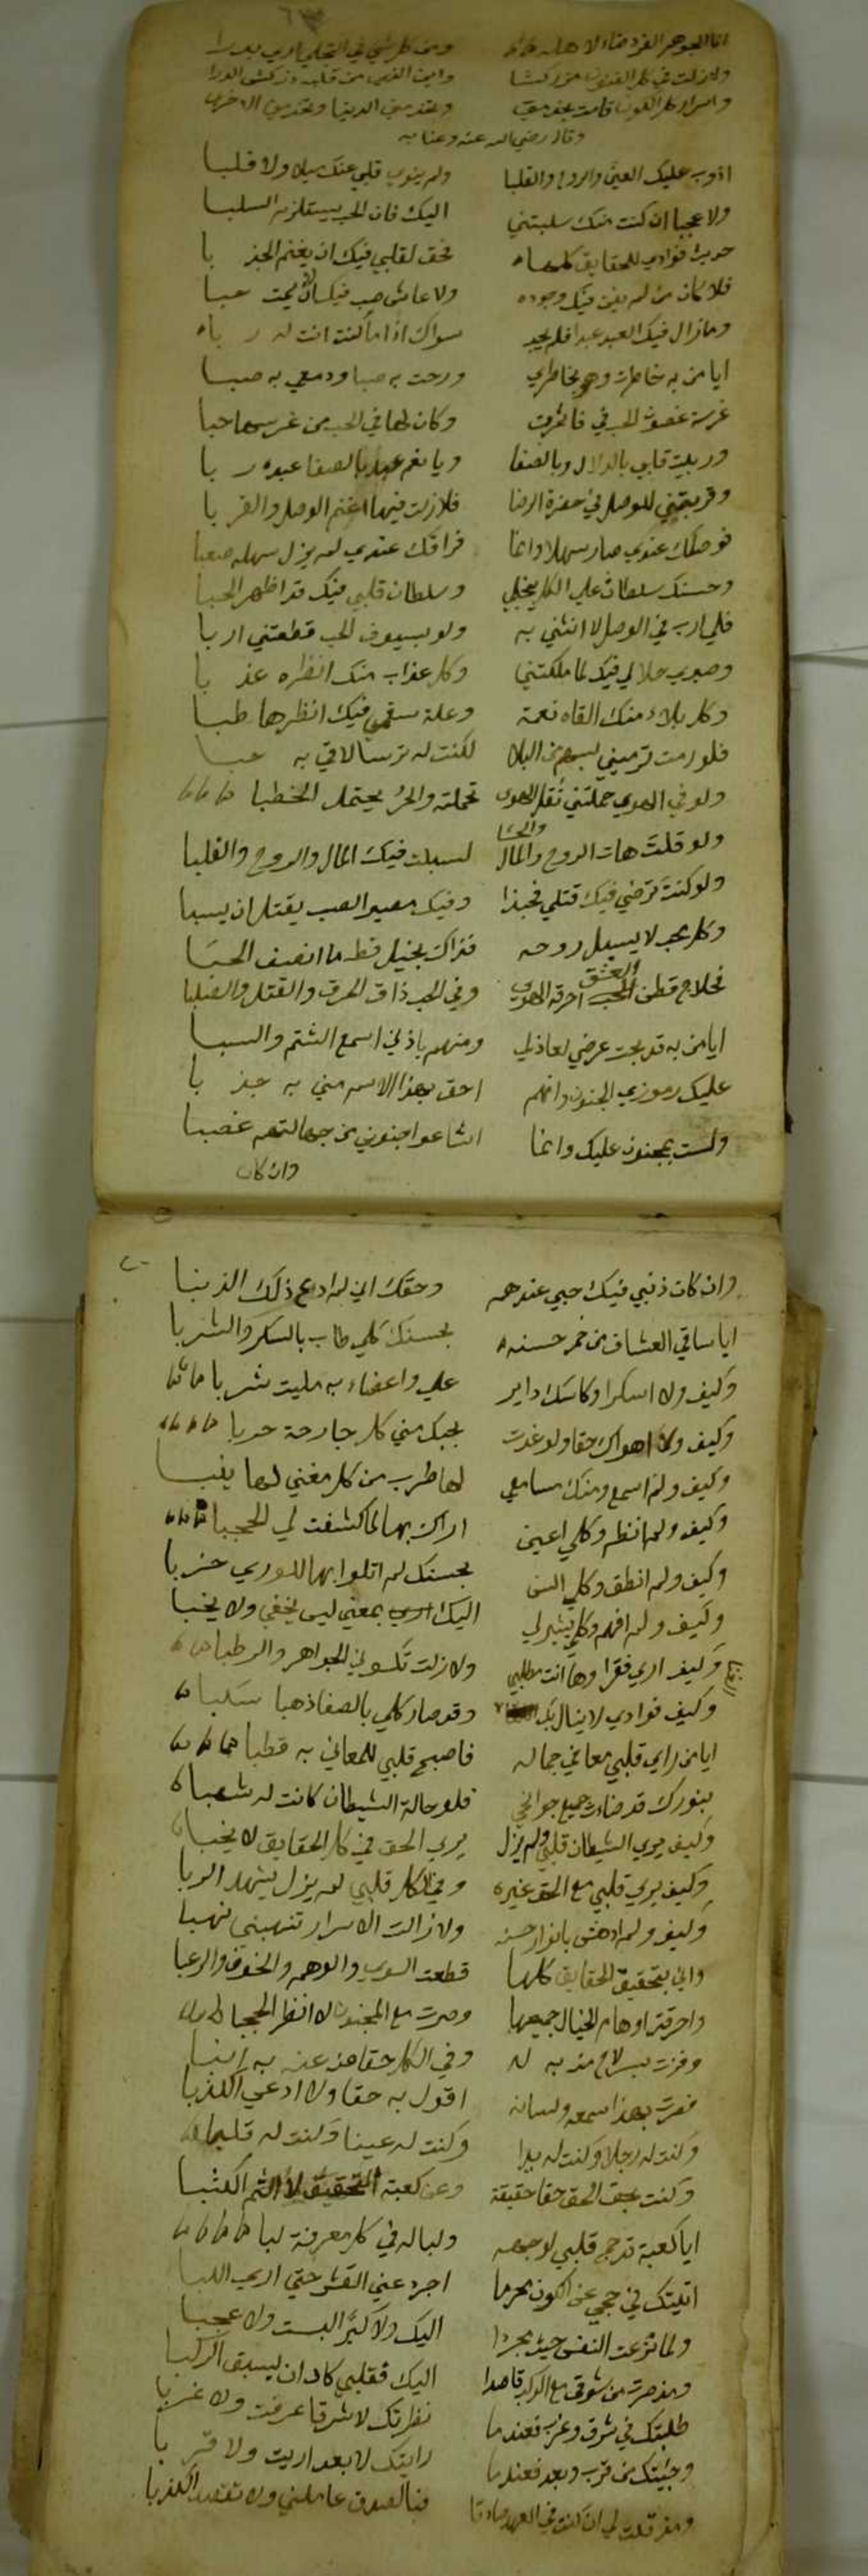 انا الجوهر الفرد ومن كل شي في التجلي اري بدرا
ولازلت في كل الفنون وابت النفس من قلبه
واسرار كل الكون قامت وعندي الدنيا وعندي الاخرا
وقال رضي الله عنه وعنا به
اذوب عليك العين والروح والقلبا ولم ينوي قلبي عنك ميلا ولا قلبا
ولا عجبا ان كنت منك سلبتني اليك فان الحب يستلزم السلبا
حويت فوادي للحقايق كلها فحق لقلبي فيك ان يغنم الجذبا
فلا كان من لم يفن فيك وجوده ولا عاش صب فيك ان لا يمت حبا
وما زال فيك العبد عبدا فلم يجد سواك اذا ما كنت انت له ربا
ايا من به خاطرت وهو بخاطري ورحت به صبا ودمعي به صبا
غرست غصون الحب في فاثمرت وكان لها في الحب من غرسها حبا
وربيت قلبي بالدلال وبالصفا ويا نعم عبد بالصفا عبده ربا
وقربتني للوصل في حضرة الرضا فلازلت فيها اغنم الوصل والقربا
فوصلك عندي صار سهلا وانما فراقك عندي لم يزل سهله صعبا
وحسنك سلطان علي الكل ينجلي وسلطان قلبي فيك قد اظهر الحبا
فلي ارب في الوصل لا انثني به ولو بسيوف الحب قطعتني اربا
وصبري حلالي فيك لما ملكتني وكل عذاب منك انظره عذبا
وكل بلاء منك القاه نعمة وعلة سقمي فيك انظرها طبا
فلو رمت ترميني بسهم من البلا لكنت له ترسا لاقي به حبا
ولو في الهوي حملتني ثقل الهوي تحملته والحر يحتمل الخطبا
ولو قلت هات الروح والمال والحشا لسبلت فيك المال والروح والقلبا
ولو كنت ترضي فيك قتلي فحبذا وفيك مصير الصب يقتل ان يسبا
وكل محب لا يسبل روحه فذاك بخيل قط ما انصف الحبا
فحلاج قطن العشق احرقه الهوي وفي الحب ذاق الحرق والقتل والصلبا
ايا من به قد بحت عرضي لعاذلي ومنهم باذني اسمع الشتم والسبا
عليك رموزي الجنون وانهم احق بهذا الاسم مني به جذبا
ولست بمجنون عليك وانما اشاعوا جنوني من جهالتهم غصبا
وان كان
وان كان ذنبي فيك حبي عندهم وحقك اني لم ادع ذلك الذنبا
ايا ساقي العشاق من خمر حسنه بحسنك كلي طاب بالسكر والشربا
وكيف ولا اسكر وكاسك داير علي واعضاء به مليت شربا
وكيف ولا اهواك حقا ولو غدت بحبك مني كل جارحة حربا
وكيف ولم اسمع ومنك مسامعي لها طرب من كل مغني لها
وكيف ولم انظر وكلي اعين اراك بها لما كشفت لي الحجبا
وكيف ولم انطق وكلي السن بحسنك لم اتلوا بها للوري حزبا
وكيف ولم افهم وكلي يشير لي اليك بمعني ليس يخفي ولا يخبا
وكيف اري فقرا وها انت مطلبي ولازلت تكسوني الجواهر والرطبا
وكيف فوادي لا ينال بك وقد صار كلي بالصفا ذهبا سكبا
ايا من راي قلبي معاني جماله فاصبح قلبي للمعاني به قطبا
بنورك قد ضاءت جميع جوانحي فلو حالة الشيطان كانت له شهبا
وكيف يري الشيطان قلبي ولم يزل يري الحق في كل الحقايق لا يخبا
وكيف يري قلبي مع الحق غيره وفي الكل قلبي لم يزل يشهد الربا
وكيف ولم ادهش بانوار حسنه ولا زالت الاسرار تنهبني نهبا
واني بتحقيق الحقايق كلها قطعت السوي والوهم والخوف والرعبا
واحرقت اوهام الخيال جميعها وصرت مع المحبوب لا انظر الحجبا
وفزت بسر لاح منه به له وفي الكل حقا
فصرت بهذا سمعه ولسانه اقول به حقا ولا ادعي الكذبا
وكنت له رجلا وكنت له يدا وكنت له عينا وكنت له قلبا
وكنت بحق الحق حقا حقيقة وعن كعبة التحقيق لا الثم الكثبا
ايا كعبة قد حج قلبي لوجهه ولبا له في كل معرفة لبا
اتيتك في حجي عن الكون محرما اجرد عني القشر حتي اري اللبا
ولما نزعت النفس جيت مجردا اليك ولا كبرا لبست ولا عجبا
ومذ صرت من شوقي مع الركب قاصدا اليك فقلبي كاد ان يسبق الركبا
طلبتك في شرق وغرب فعندما نظرتك لا شرقا عرفت ولا غربا
وجيتك من قرب وبعد فعندما رايتك لا بعد اريت ولا قربا
ومذ قلت لي ان كنت في العهد صادقا فبالصدق عاملني ولا تقصد الكذبا